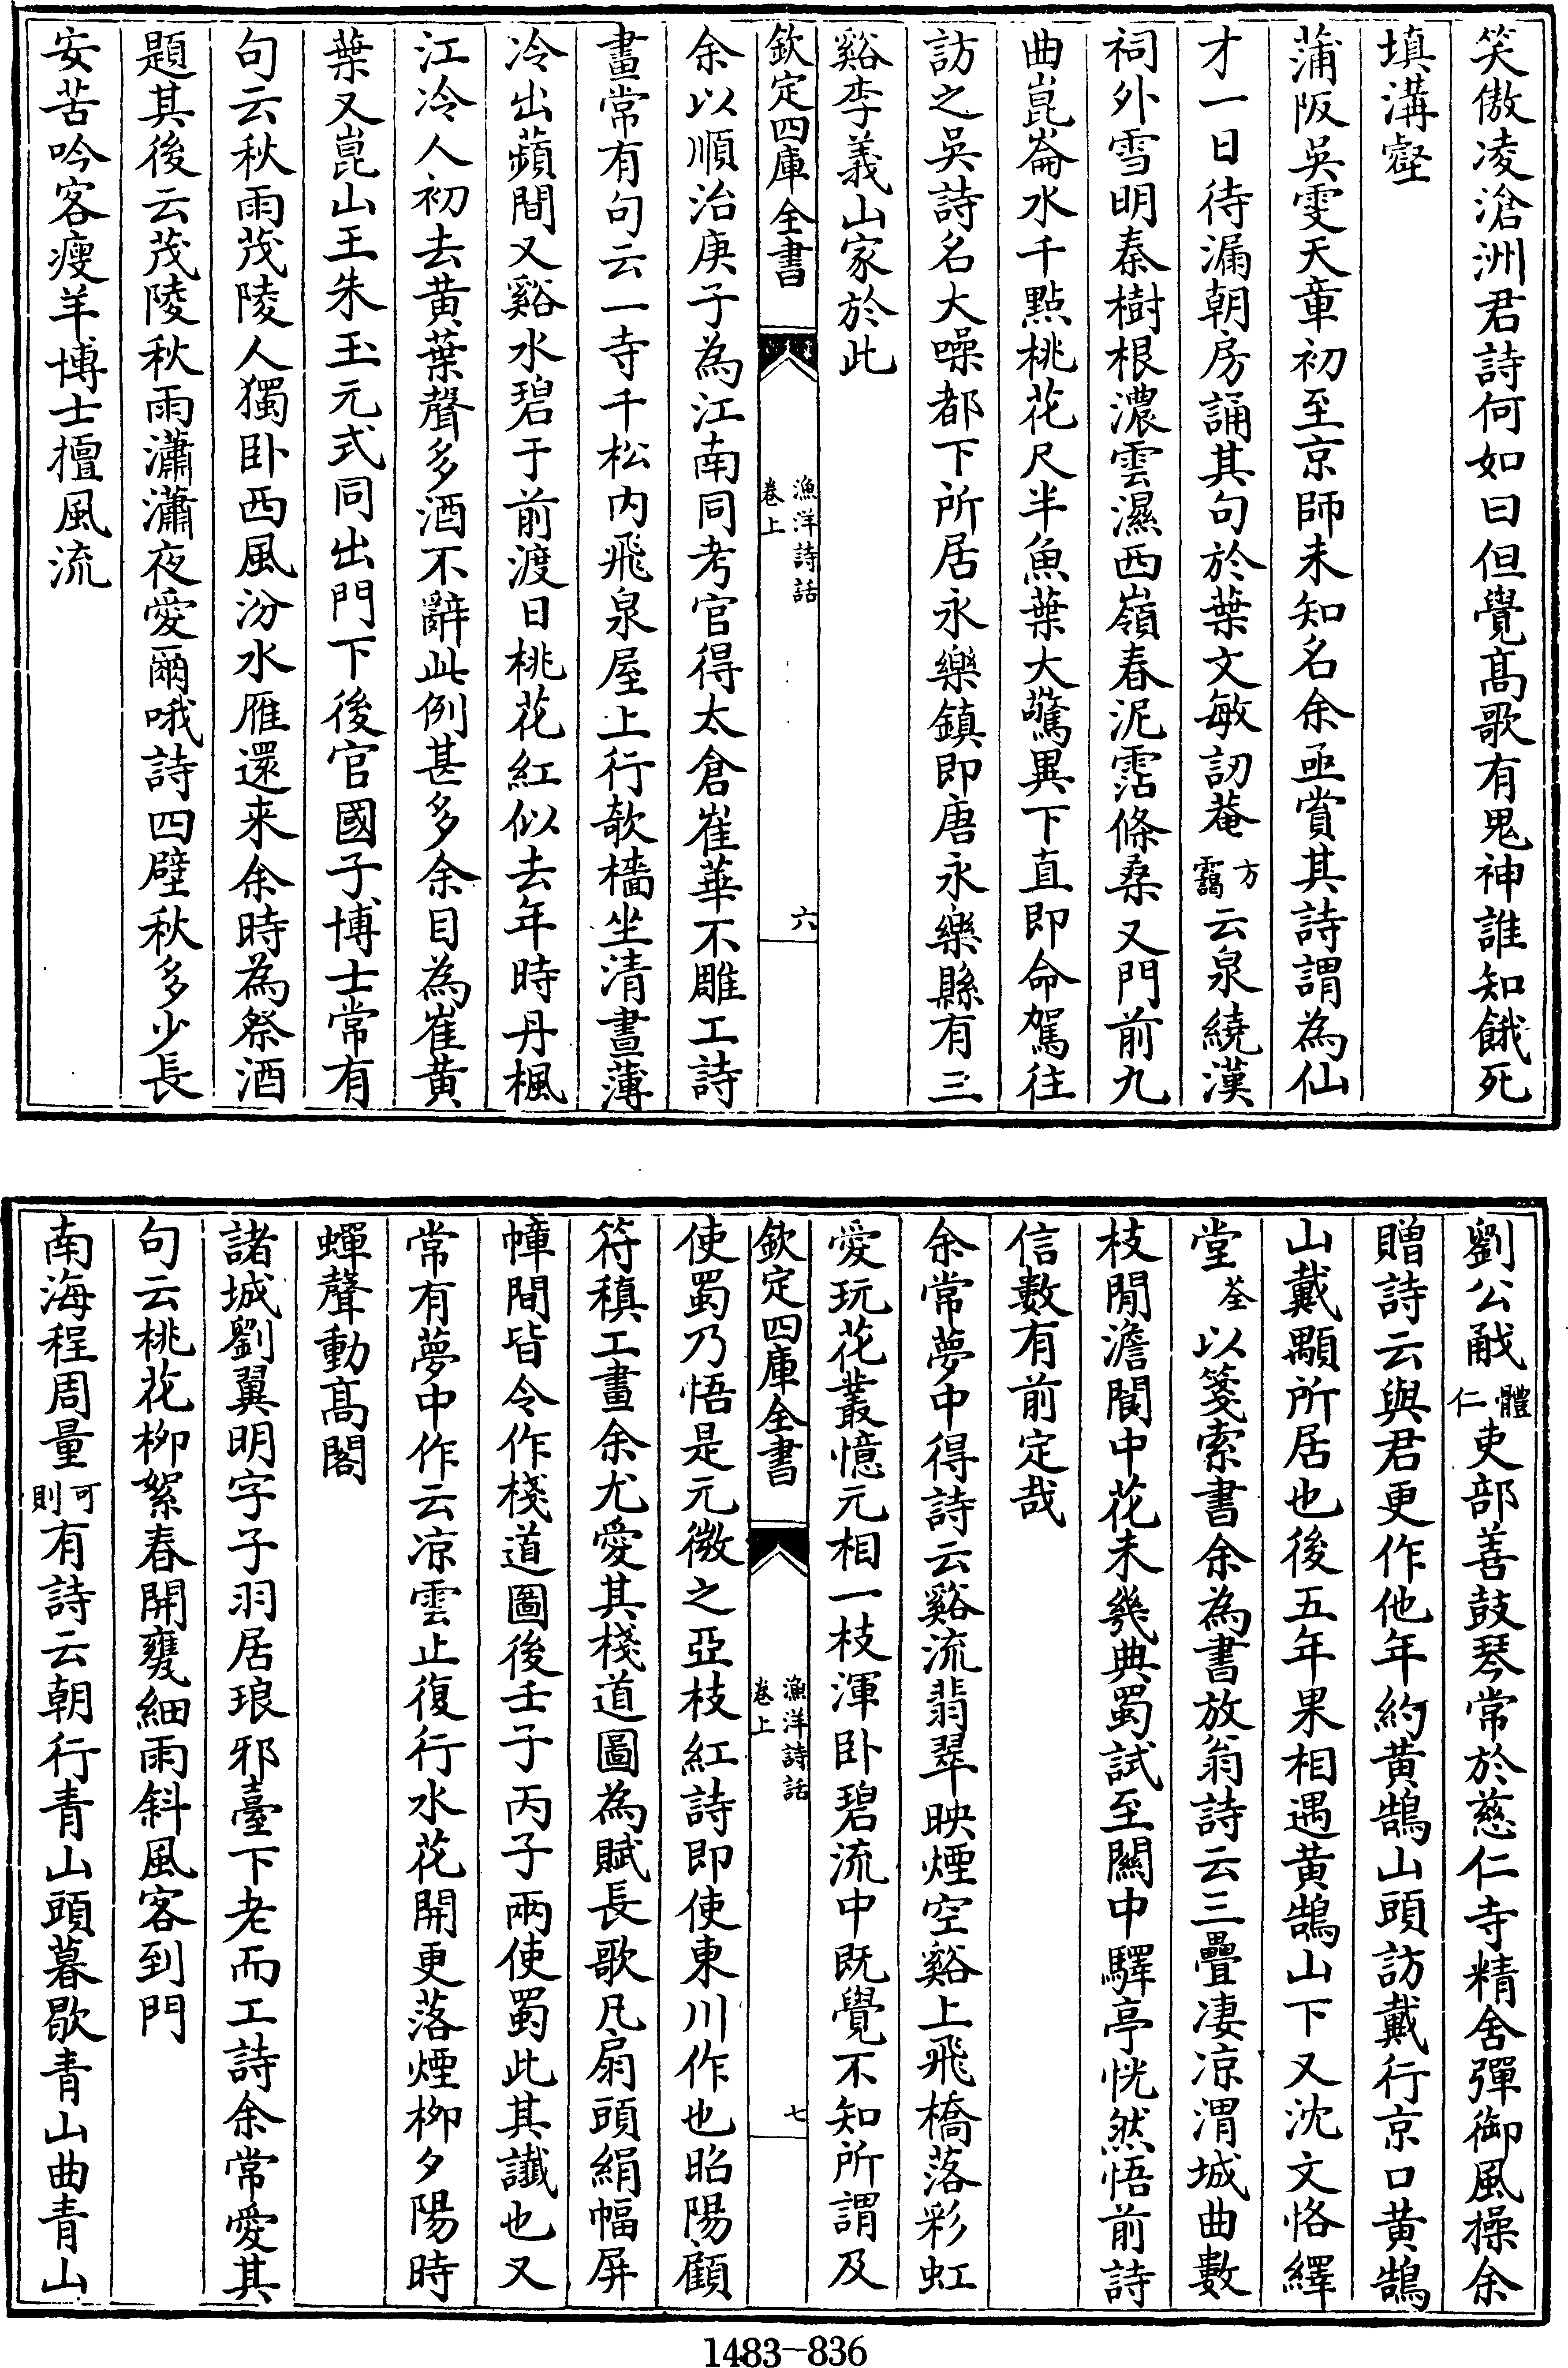 笑傲凌滄洲君詩何如曰但覺髙歌有鬼神誰知餓死
填溝壑
蒲阪吳雯天章初至京師未知名余亟賞其詩謂為仙
才一日待漏朝房誦其句於葉文敏訒菴方靄云泉繞漢
祠外雪明秦樹根濃雲濕西嶺春泥霑條桑又門前九
曲崑崙水千點桃花尺半魚葉大驚異下直即命駕往
訪之吳詩名大噪都下所居永樂鎮即唐永樂縣有三
谿李義山家於此
欽定四庫全書
漁洋詩話
卷上
六
余以順治庚子為江南同考官得太倉崔華不雕工詩
畫常有句云一寺千松内飛泉屋上行欹檣坐清晝薄
冷出蘋間又谿水碧于前渡日桃花紅似去年時丹楓
江冷人初去黄葉聲多酒不辭此例甚多余目為崔黄
葉又崑山王朱玉元式同出門下後官國子博士常有
句云秋雨茂陵人獨卧西風汾水雁還来余時為祭酒
題其後云茂陵秋雨瀟瀟夜愛爾哦詩四壁秋多少長
安苦吟客瘦羊博士擅風流
劉公㦷體仁吏部善鼓琴常於慈仁寺精舍彈御風操余
贈詩云與君更作他年約黄鵠山頭訪戴行京口黄鵠
山戴顒所居也後五年果相遇黄鵠山下又沈文恪繹
堂荃以箋索書余為書放翁詩云三疊凄凉渭城曲數
枝閒澹閬中花未幾典蜀試至闗中驛亭恍然悟前詩
信數有前定哉
余常夢中得詩云谿流翡翠映煙空谿上飛橋落彩虹
愛玩花叢憶元相一枝渾卧碧流中既覺不知所謂及
欽定四庫全書
漁洋詩話
卷上
七
使蜀乃悟是元微之亞枝紅詩即使東川作也昭陽顧
符稹工畫余尤愛其棧道圖為賦長歌凡扇頭絹幅屏
幛間皆令作棧道圖後壬子丙子兩使蜀此其讖也又
常有夢中作云凉雲止復行水花開更落煙柳夕陽時
蟬聲動髙閣
諸城劉翼明字子羽居琅邪臺下老而工詩余常愛其
句云桃花柳絮春開甕細雨斜風客到門
南海程周量可則有詩云朝行青山頭暮歇青山曲青山
1483-836